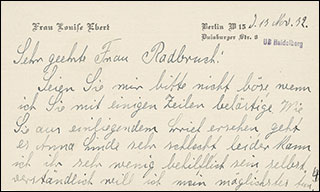 Frau Louise Ebert
Berlin W 15, d. 13 Nov. 32.
Duisburger Str. 8
UB Heidelberg
Sehr geehrte Frau Radbruch!
Seien Sie mir bitte nicht böse wenn
ich Sie mit einigen Zeilen belästige Wie
Sie aus einliegendem Brief ersehen geht
es Anna Linde sehr schlecht leider kann
ich ihr sehr wenig behilflich sein selbst
verständlich will ich mein möglichstes tun